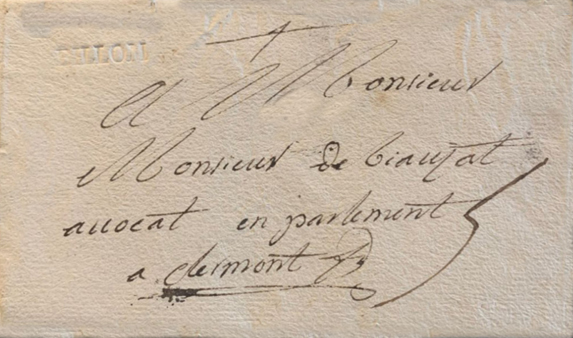 A Monsieur
Monsieur de biauzat
avocat en parlement
a clermont